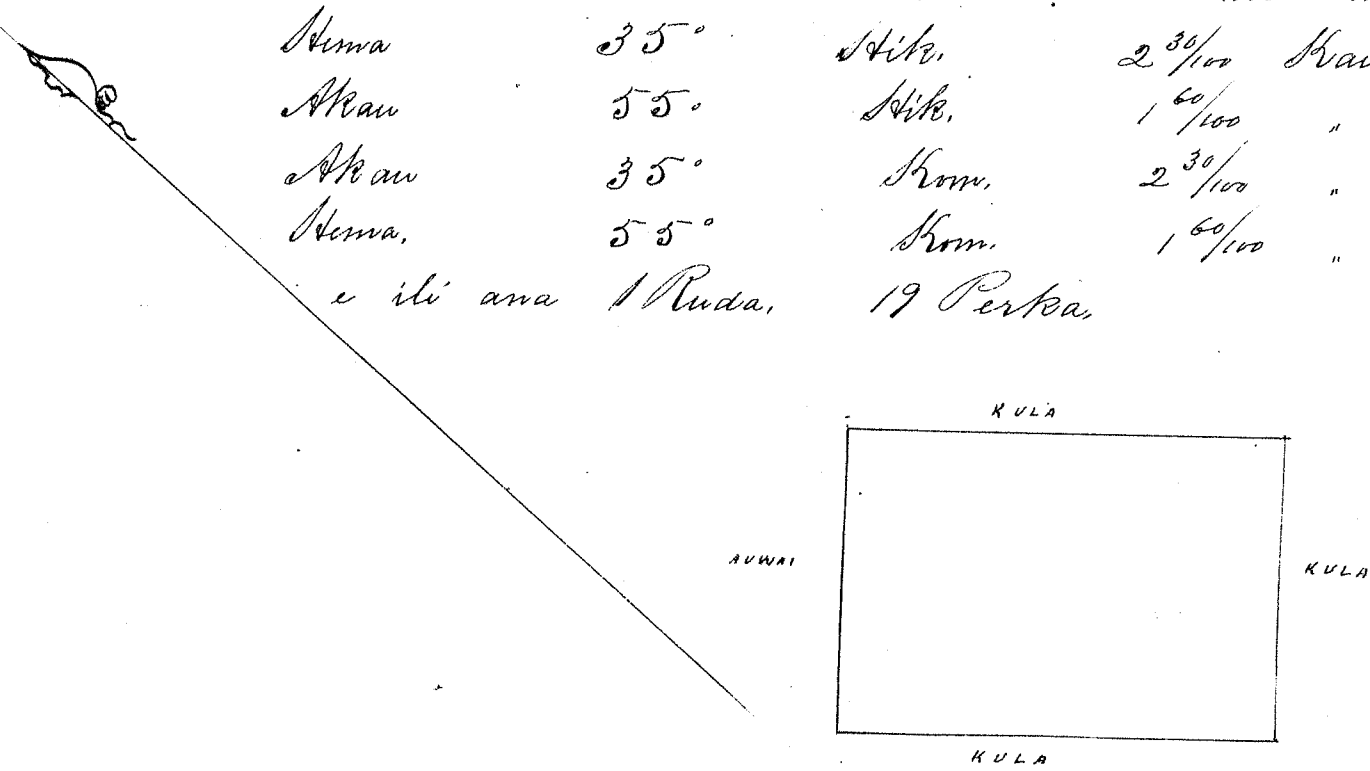 Hema 35° Hik. 2 30/100 Kau
Akau 55° Hik. 1 60/100 "
Akau 35° Kom. 2 30/100 "
Hema. 55° Kom. 1 60/100 "
e ili ana 1 Ruda. 19 Perka.
KULA
AUWAI
KULA
KULA